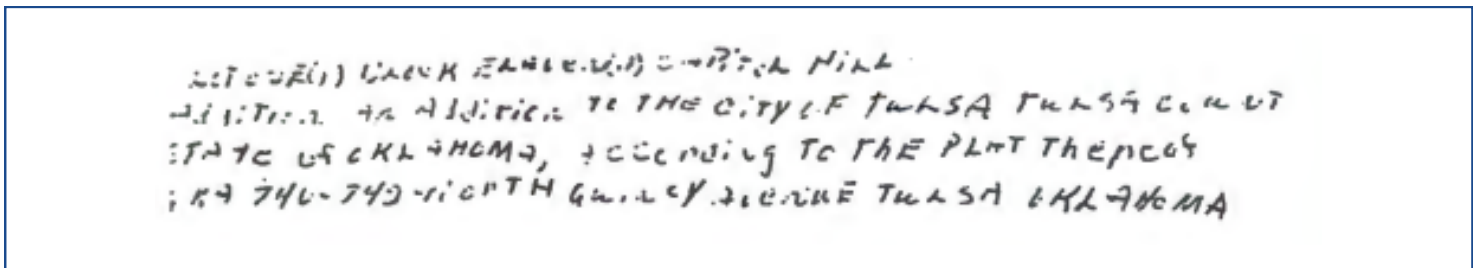 LOT ONE(1) BLOCK ELEVEN(11) CAPITOL HILL
ADDITION AN ADDITION TO THE CITY OF TULSA TULSA COUNT
STATE OF OKLAHOMA, ACCORDING TO THE PLAT THEREOF
; KA 740-742 NORTH QUINCY AVENUE TULSA OKLAHOMA